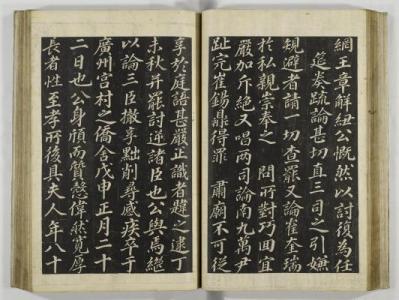 綱王章解紐公慨然以討復為任
追奏疏論甚切直三司之引嫌
規避者請一切查罷又論崔奎瑞
於私親崇奉之 問所對巧回宜
嚴加斥絕又唱两司論南九萬尹
趾完崔錫鼎得罪 肅廟不可從
享於庭語甚嚴正識者韙之逮丁
未秋并罷討逆諸臣也公與焉繼
以論三臣撤享黜削尋感疾卒于
廣州宮村之僑舍戊申正月二十
二日也公身頎而質慤偉然寬厚
長者性至孝所後具夫人年八十